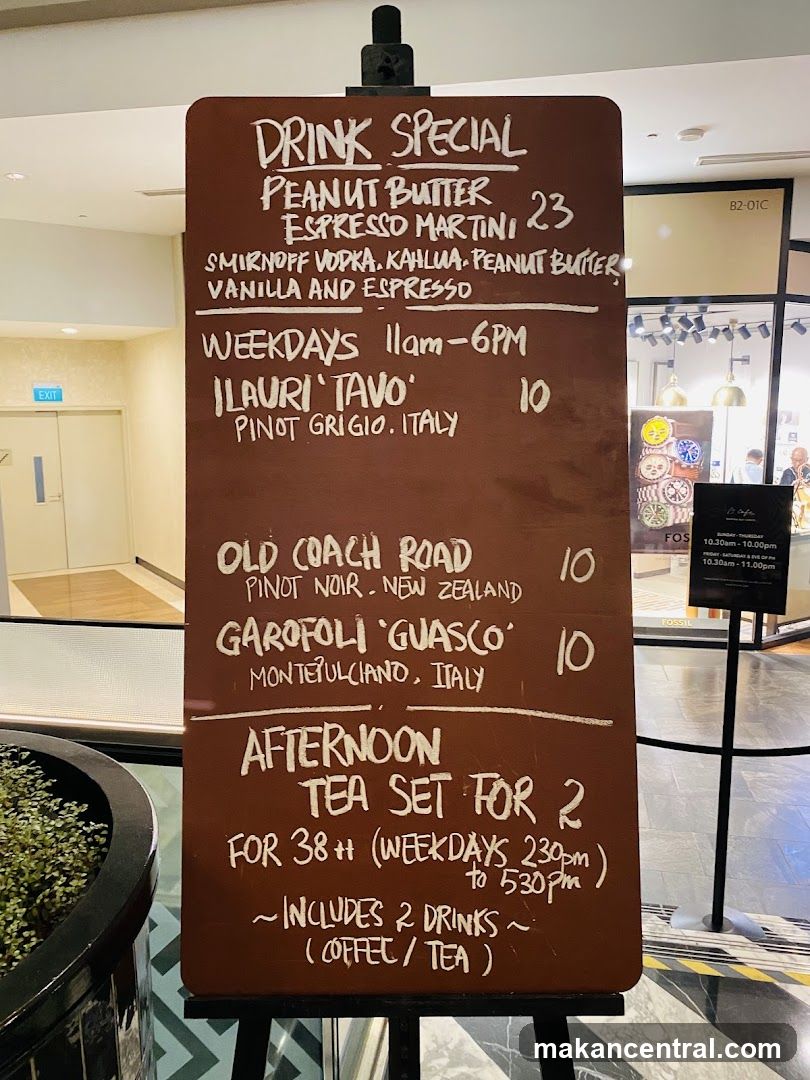 DRINK SPECIAL
PEANUT BUTTER
ESPRESSO MARTINI 23
SMIRNOFF VODKA. KAHLUA. PEANUT BUTTER,
VANILLA AND ESPRESSO
WEEKDAYS 11am - 6PM
ILAURI 'TAVO' 10
PINOT GRIGIO. ITALY
OLD COACH ROAD 10
PINOT NOIR. NEW ZEALAND
GAROFOLI 'GUASCO' 10
MONTEPULCIANO, ITALY
AFTERNOON
TEA SET FOR 2
FOR 38++ (WEEKDAYS 230pm
to 530pm)
~INCLUDES 2 DRINKS~
(COFFEE / TEA)
B2-01C
EXIT
FOS
FOSSIL
SUNDAY - THURSDAY
10.30am - 10.00pm
FRIDAY - SATURDAY & EVE OF PH
10.30am - 11.00pm
makancentral.com